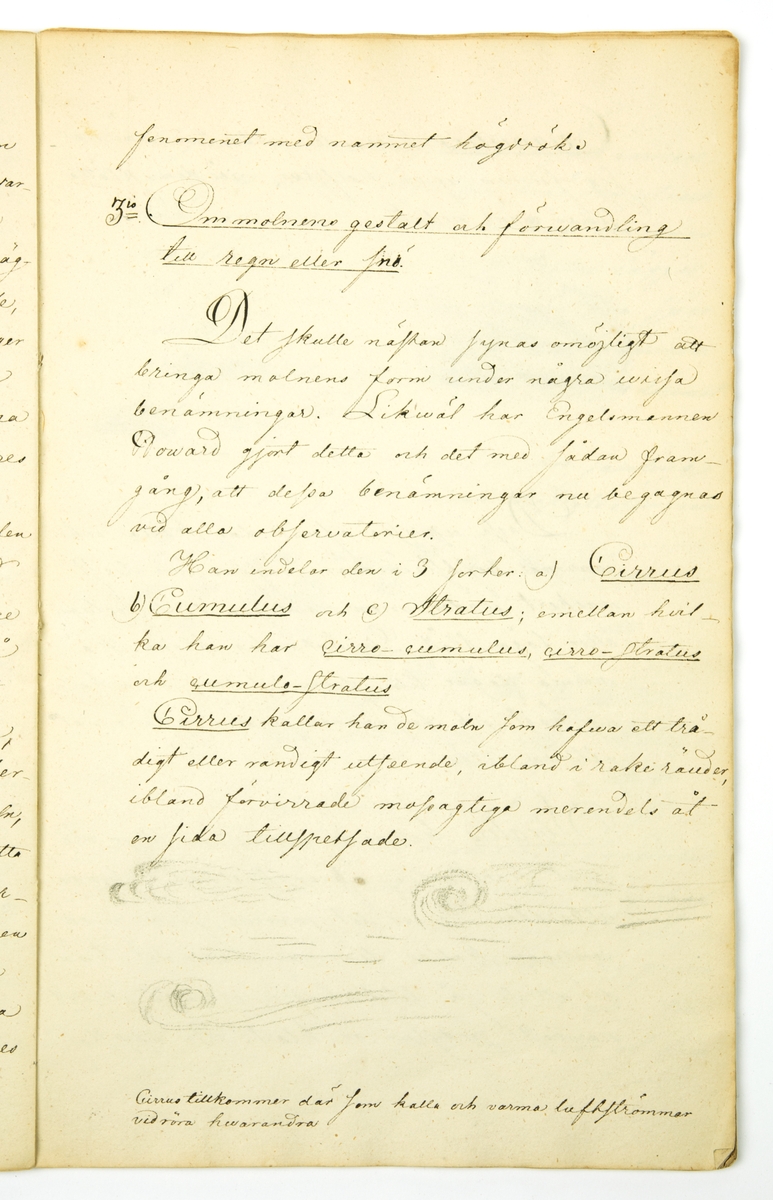 fenomenet med namnet högdrök.
3io. Om molnens gestalt och förwandling
till regn eller snö.
Det skulle nästan synas omöjligt att
bringa molnens form under några wissa
benämningar. Likwäl har Engelsmannen
Howard gjort detta och det med sådan fram-
gång, att dessa benämningar nu begagnas
vid alla observatorier.
Han indelar den i 3 sorter: a) Cirrus
b) Cumulus och c) Stratus; emellan hvil-
ka han har cirro-cumulus, cirro-stratus
och cumulo-stratus
Cirrus kallar han de moln som hafwa ett trå-
digt eller randigt utseende, ibland i raka ränder,
ibland förvirrade mossagtiga merendels åt
en sida tillspetsade.
Cirrus tillkommer där som kalla och varma luftströmmar
vidröra hwarandra